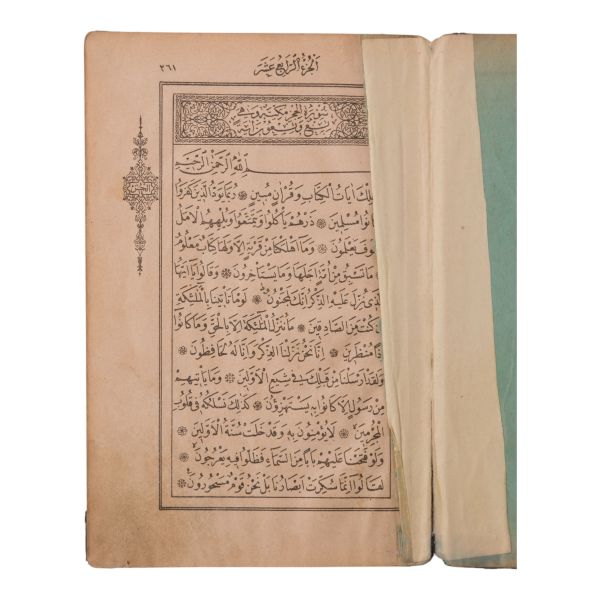 ٢٦١
اَلْجُزْءُ الرَّابِعَ عَشَرَ
سُورَةُ الْحِجْرِ مَكِّيَّةٌ وَهِيَ
تِسْعٌ وَتِسْعُونَ اٰيَةً
اللّٰهِ الرَّحْمٰنِ الرَّحِيمِ
اٰيَاتُ الْكِتَابِ وَقُرْاٰنٍ مُبِينٍ ❋ رُبَمَا يَوَدُّ الَّذِينَ كَفَرُوا
مُسْلِمِينَ ❋ ذَرْهُمْ يَأْكُلُوا وَيَتَمَتَّعُوا وَيُلْهِهِمُ الْاَمَلُ
يَعْلَمُونَ ❋ وَمَٓا اَهْلَكْنَا مِنْ قَرْيَةٍ اِلَّا وَلَهَا كِتَابٌ مَعْلُومٌ
مَا تَسْبِقُ مِنْ اُمَّةٍ اَجَلَهَا وَمَا يَسْتَأْخِرُونَ ❋ وَقَالُوا يَٓا اَيُّهَا
الَّذِي نُزِّلَ عَلَيْهِ الذِّكْرُ اِنَّكَ لَمَجْنُونٌ ❋ لَوْ مَا تَأْتِينَا بِالْمَلٰٓئِكَةِ
كُنْتَ مِنَ الصَّادِقِينَ ❋ مَا نُنَزِّلُ الْمَلٰٓئِكَةَ اِلَّا بِالْحَقِّ وَمَا كَانُٓوا
مُنْظَرِينَ ❋ اِنَّا نَحْنُ نَزَّلْنَا الذِّكْرَ وَاِنَّا لَهُ لَحَافِظُونَ ❋
وَلَقَدْ اَرْسَلْنَا مِنْ قَبْلِكَ فِي شِيَعِ الْاَوَّلِينَ ❋ وَمَا يَأْتِيهِمْ
مِنْ رَسُولٍ اِلَّا كَانُوا بِهِ يَسْتَهْزِؤُنَ ❋ كَذٰلِكَ نَسْلُكُهُ فِي قُلُوبِ
الْمُجْرِمِينَ ❋ لَا يُؤْمِنُونَ بِهِ وَقَدْ خَلَتْ سُنَّةُ الْاَوَّلِينَ ❋
وَلَوْ فَتَحْنَا عَلَيْهِمْ بَابًا مِنَ السَّمَٓاءِ فَظَلُّوا فِيهِ يَعْرُجُونَ ❋
لَقَالُٓوا اِنَّمَا سُكِّرَتْ اَبْصَارُنَا بَلْ نَحْنُ قَوْمٌ مَسْحُورُونَ ❋